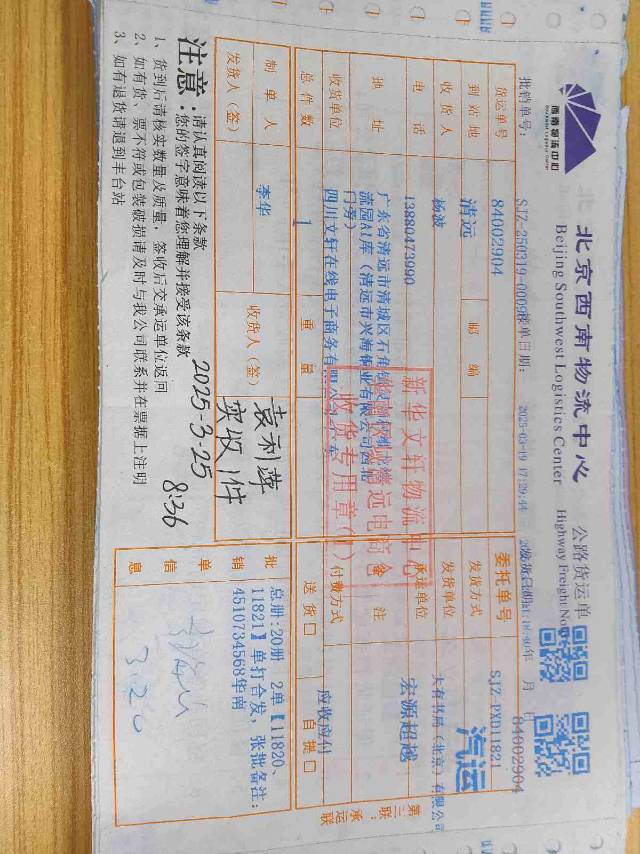 西南物流中心
北京西南物流中心
Beijing Southwest Logistics Center
公路货运单
Highway Freight Note
批销单号：
SJZ-250319-0009
接单日期：
2025-03-19 17:29:44
年 月 日
84002904
货运单号
84002904
委托单号
SJZ-PXD11821
到站地
清远
邮编
发货方式
汽运
收货人
杨波
发货单位
大有书局（北京）有限公司
电话
13880473990
承运单位
宏源超越
地址
广东省清远市清城区石角镇
流园A1库（清远市兴海铜业有限公司西北
门旁）
备注
收货单位
四川文轩在线电子商务有限公司
付费方式
应收应付
总件数
1
重量
送货□
自提□
新华文轩物流中心
清远电商仓
收货专用章
制单人
李华
收货人（签）
袁利萍
实收1件
发货人（签）
批销单信息
总册：20册 2单【11820、
11821】单打合发，张批备注：
4510734568华南
3.20
第三联：承运联
注意：
请认真阅读以下条款
您的签字意味着您理解并接受该条款
2025-3-25
8:36
1、货到后请核实数量及质量，签收后交承运单位返回
2、如有货、票不符或包装破损请及时与我公司联系并在票据上注明
3、如有退货请退到丰台站